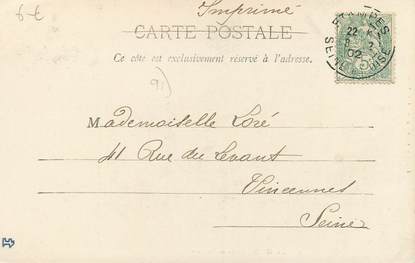 6-€
Imprimé
CARTE POSTALE
Ce côté est exclusivement réservé à l'adresse.
91)
ETAMPES
22
02
SEINE
Mademoiselle Loré
41 Rue du Levant
Vincennes
Seine